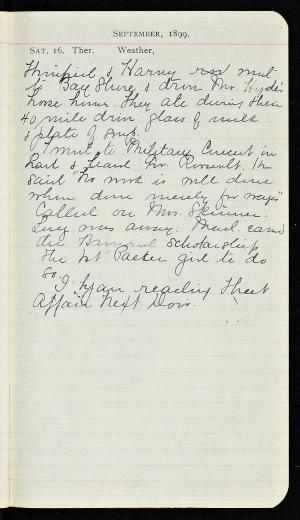 September, 1899.
Sat. 16. Ther. Weather,
& Harry rod wul
to Bay Shore & driv Mr. Hyde's
horse home. They ate during their
40 mile driv glass of milk
& plate of soup.
I went to Military Concert in
Park & heard Mr. Roosevelt. He
said "No work is well done
when done merely for wages"
Called on Mrs. Skinner.
Lucy was away. Maud earned
the Barnard scholarship
the 1st Packer girl to do
so.
I began reading That
Affair Next Door.